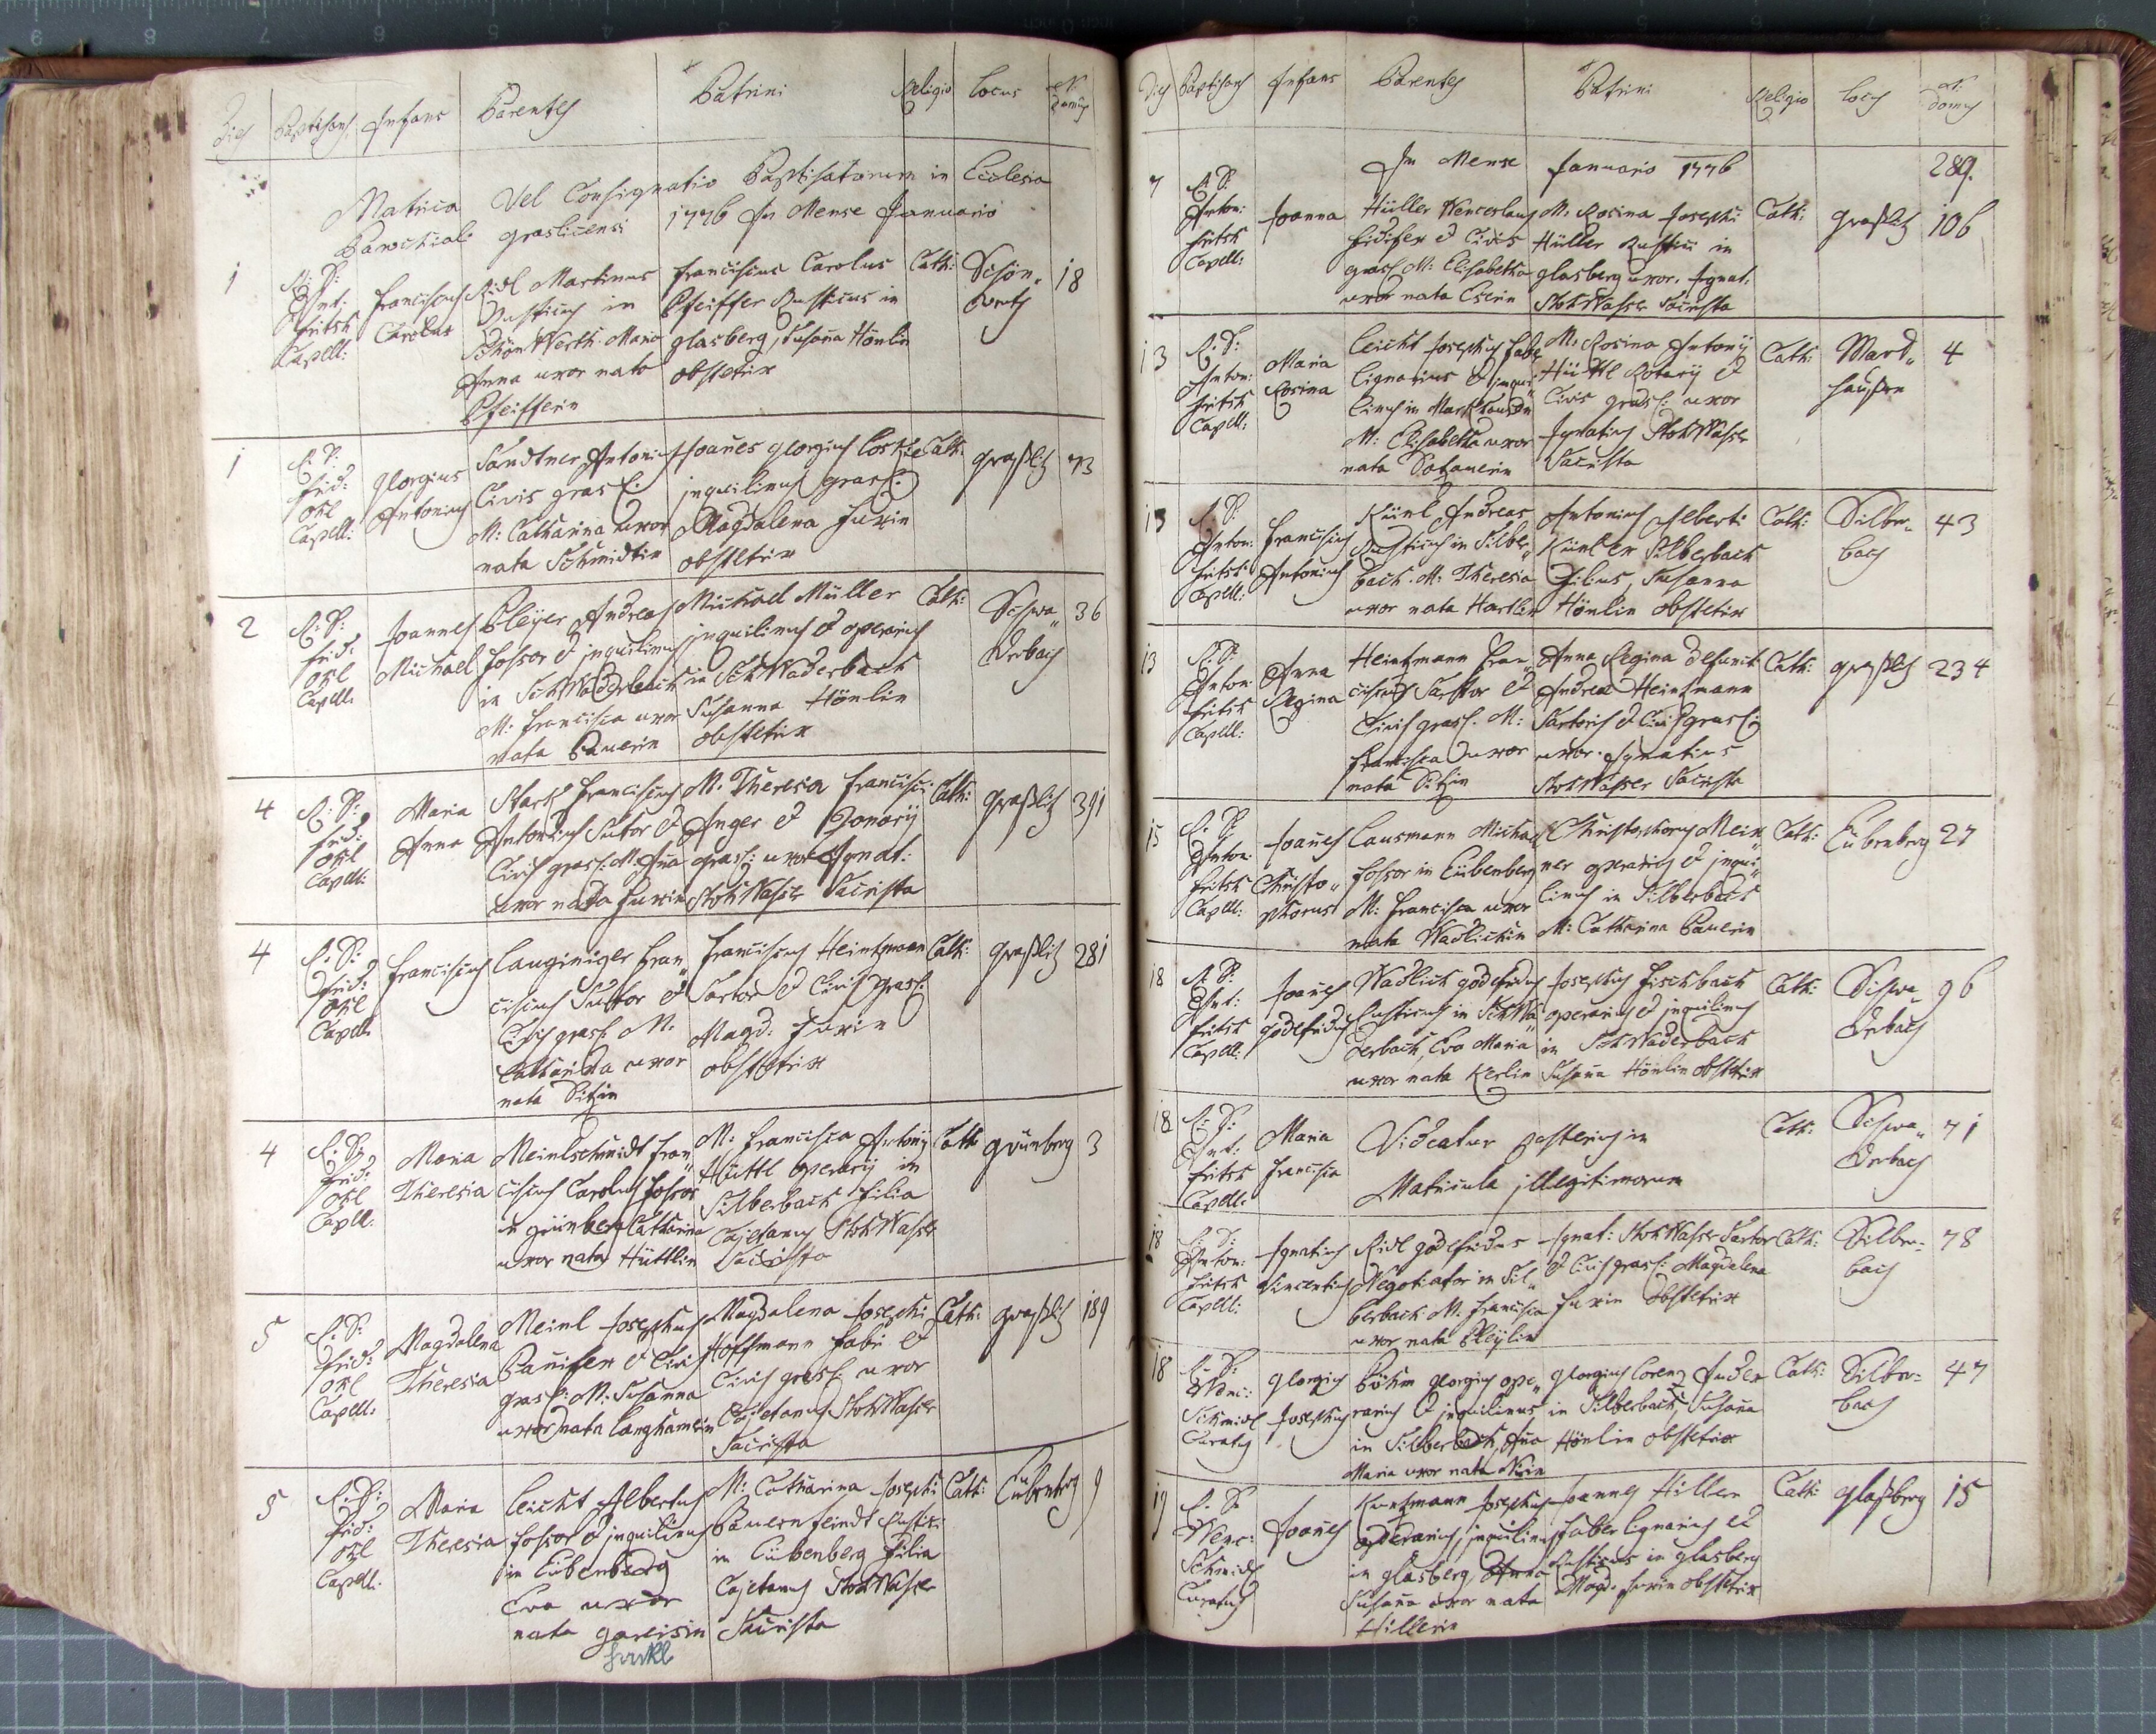 Dies Baptisans Infans Parentes Patrini Religio Locus N: Domus
Matrica Vel Consignatio Baptisatorum in Ecclesia
Parochiali graslicensi 1776 In Mense Januario
1 R: D: Ant: Fritsch Capell: Franciscus Carolus
Ridl Martinus
Rusticus in
SchönWerth. Maria
Anna uxor nata
Pfeifferin
Franciscus Carolus
Pfeiffer Rusticus in
glasberg, Susana Hönlin
obstetrix
Cath: Schön„ werth 18
1 R: D: Frid: Capell: Georgius Antonius
Sandtner Antonius
Civis grasl:
M: Catharina uxor
nata Schmidtin
Joañes georgius
inquilinus grasl:
Magdalena Fuxin
obstetrix
Cath: graßlitz 73
2 R: D: Frid: Capell: Joannes Michael
Pleÿer Andreas
Fossor & inquilinus
in SchWaderbach
M: Francisca uxor
nata Bauerin
Michael Müller
inquilinus & operarius
in SchWaderbach
Susanna Hönlin
obstetrix
Cath: Schwa„ derbach 36
4 R: D: Frid: Capell: Maria Anna
Stark Franciscus
Antonius Sutor &
Civis grasl: M: Aña
uxor nata Fuxin
M. Theresia Francisci
Anger &
grasl: uxor Ignat:
StohWasser Sacrista
Cath: graßlitz 391
4 R: D: Frid: Capell: Franciscus
Langiniger Fran„
ciscus Sutor &
Civis grasl: M.
Catharina uxor
nata
Franciscus Heintzmann
Sartor & Civis grasl:
Magd: Fuxin
obstetrix
Cath: graßlitz 281
4 R: D: Frid: Capell: Maria Theresia
Meinlschmidt Fran„
ciscus Carolus Fossor
in grünberg Catharina
uxor nata Hüttlin
M: Francisca Antonÿ
Hüttl operarÿ in
Silberbach Filia
Cajetanus StohWasser
Sacrista
Cath: grünberg 3
5 R: D: Frid: Capell: Magdalena Theresia
Meinl Josephus
Panifex & Civis
grasl: M: Susanna
uxor nata Langhamerin
Magdalena Josephi
Hoffmann Fabri &
Civis grasl: uxor
Cajetanus StohWasser
Sacrista
Cath: graßlitz 189
5 R: D: Frid: Capell: Maria Theresia
Leicht Albertus
Fossor & inquilinus
in Eubenberg
Eva uxor
nata
M: Catharina Josephi
Bauernfeindt Rustici
in Eübenberg Filia
Cajetanus StohWasser
Sacrista
Cath: Eübenberg 9
Dies Baptisans Infans Parentes Patrini Religio Locus N: Domus
In Mense Januario 1776 289.
7 R: D: Anton: Fritsch Capell: Joanna
Hüller Wenceslaus
& Civis
grasl: M: Elisabetha
uxor nata
M: Rosina Josephi
Hüller Rustici in
glasberg uxor. Ignat:
StohWasser Sacrista
Cath: graßlitz 106
13 R: D: Anton: Fritsch Capell: Maria Rosina
Leicht Josephus Faber
Lignarius & inqui„
linus in Markhausen
M: Elisabetha uxor
nata
M: Rosina Antonÿ
Hüttl Rotarÿ &
Civis grasl: uxor
Ignatius StohWasser
Sacrista
Cath: Mark„ haußen 4
13 R: D: Anton: Fritsch Capell: Franciscus Antonius
Künl Andreas
Rusticus in Silber„
bach. M: Theresia
uxor nata Hartlin
Antonius Alberti
Künl ex Silberbach
Filius, Susanna
Hönlin obstetrix
Cath: Silber„ bach 43
13 R: D: Anton: Fritsch Capell: Anna Regina
Heintzmann Fran„
ciscus Sartor &
Civis grasl: M:
Francisca uxor
nata
Anna Regina defuncti
Andreæ Heintzmann
Sartoris & Civis grasl:
uxor. Ignatius
StohWasser Sacrista
Cath: graßlitz 234
15 R: D: Anton: Fritsch Capell: Joañes Christo„ phorus
Lausmann Michael
Fossor in Eübenberg
M: Francisca uxor
nata Wadlichin
Christophorus Meix„
ner operarius & inqui„
linus in Silberbach
M: Catharina Bauerin
Cath: Eübenberg 27
18 R: D: Ant: Fritsch Capell: Joañes godefridus
Wadlich godefridus
Rusticus in SchWa„
derbach, Eva Maria
uxor nata Kerlin
Josephus Fischbach
operarius & inquilinus
in SchWaderbach
Susaña Hönlin obstetrix
Cath: Schwa„ derbach 96
18 R: D: Ant: Fritsch Capell: Maria Francisca
Videatur posterius in
Matricula illegitimorum
Cath: Schwa„ derbach 71
18 R: D: Anton: Fritsch Capell: Ignatius Vincentius
Ridl godefridus
Negotiator in Sil„
berbach M. Francisca
uxor nata Pleÿlin
Ignat: StohWasser Sartor
& Civis grasl: Magdalena
Fuxin obstetrix
Cath: Silber„ bach 78
18 R: D: Wenc: Schmidl Curatus georgius Josephus
Böhm georgius ope„
rarius & inquilinus
in Silberbach, Aña
Maria uxor nata
georgius Lorenz
in Silberbach, Susaña
Hönlin obstetrix
Cath: Silber„ bach 47
19 R: D: Wenc: Schmidl Curatus Joañes
Kuntzmann Josephus
operarius, inquilinus
in glasberg, Anna
Susaña uxor nata
Hillerin
Joannes Hiller
Faber lignarius &
Rusticus in glasberg
Magd. Fuxin obstetrix
Cath: glaßberg 15